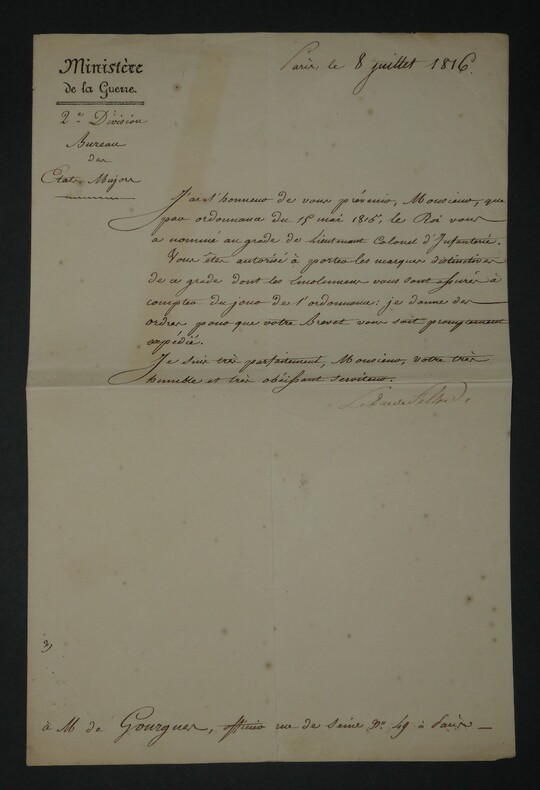 Ministère
de la Guerre.
2e Division
Bureau
des
Etats Majors
Paris, le 8 juillet 1816.
J'ai l'honneur de vous prévenir, Monsieur, que
par ordonnance du 15 mai 1816, le Roi vous
a nommé au grade de Lieutenant Colonel d'Infanterie.
Vous êtes autorisé à porter les marques distinctives
de ce grade dont les émolumens vous sont assurés à
compter du jour de l'ordonnance: je donne des
ordres pour que votre Brevet vous soit promptement
expédié.
Je suis très parfaitement, Monsieur, votre très
humble et très obéissant serviteur.
Le Duc de Feltre
3)
à M de Gourgues, officier rue de Seine No 49 à Paris